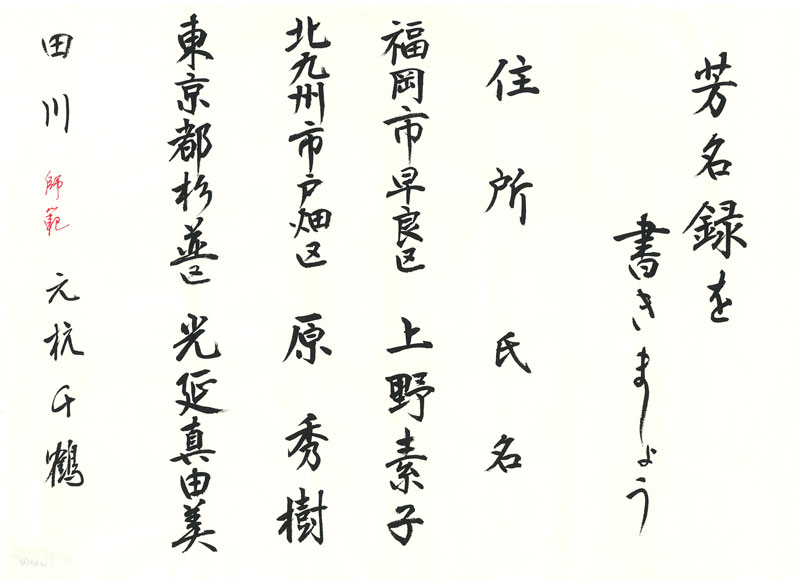 芳名録を
書きましょう
住所 氏名
福岡市早良区 上野素子
北九州市戸畑区 原秀樹
東京都杉並区 光延真由美
田川 師範 元杭千鶴